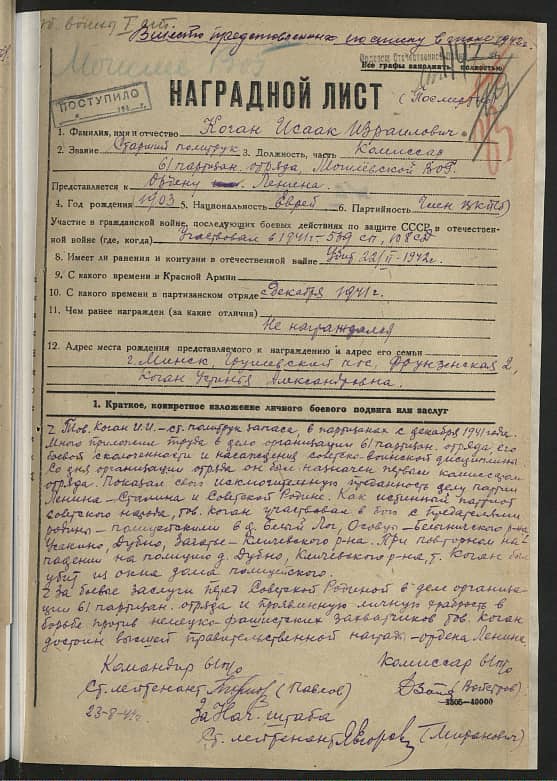 Вместо представленных по списку в июне 1942г.
Могилев ВОГ
Все графы заполнять полностью
ПОСТУПИЛО
НАГРАДНОЙ ЛИСТ
(Посмертно)
1. Фамилия, имя и отчество Коган Исаак Израилович.
2. Звание Старший политрук 3. Должность, часть Комиссар
61 партизан. отряда, Могилёвской ВОГ.
Представляется к Ордену Ленина.
4. Год рождения 1903 5. Национальность Еврей 6. Партийность Член ВКП(б)
Участие в гражданской войне, последующих боевых действиях по защите СССР и отечествен-
ной войне (где, когда) Участвовал в 1941г - 539 сп, 108 сд
8. Имеет ли ранения и контузии в отечественной войне Убит 22/II-1942г.
9. С какого времени в Красной Армии
10. С какого времени в партизанском отряде с декабря 1941г.
11. Чем ранее награжден (за какие отличия)
Не награждался
12. Адрес места рождения представляемого к награждению и адрес его семьи
г. Минск, Грушевский пос, Фрунзенская 2,
Коган Устинья Александровна.
1. Краткое, конкретное изложение личного боевого подвига или заслуг
Тов. Коган И.И. - ст. политрук запаса, в партизанах с декабря 1941 года.
Много приложил труда в дело организации 61 партизан. отряда, его
боевой сколоченности и насаждения советско-воинской дисциплины.
Со дня организации отряда он был назначен первым комиссаром
отряда. Показал свою исключительную преданность делу партии
Ленина - Сталина и Советской Родине. Как истинный патриот
советского народа, тов. Коган участвовал в бою с предателями
родины - полицейскими в д. Белый Лог, Осовец - Белыничского р-на
Усакино, Дубно, Закутье - Кличевского р-на. При повторном на-
падении на полицию д. Дубно, Кличевского р-на, т. Коган был
убит из окна дома полицейского.
За боевые заслуги перед Советской Родиной в деле организа-
ции 61 партизан. отряда и проявленную личную храбрость в
борьбе против немецко-фашистских захватчиков тов. Коган
достоин высшей правительственной награды - ордена Ленина
Командир 61 п/о Комиссар 61 п/о
Ст. лейтенант (Павлов)
1505-40000
23-8-
За Нач. штаба
Ст. лейтенант